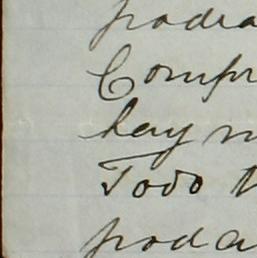 podra
Compr
hay m
Todo t
poda